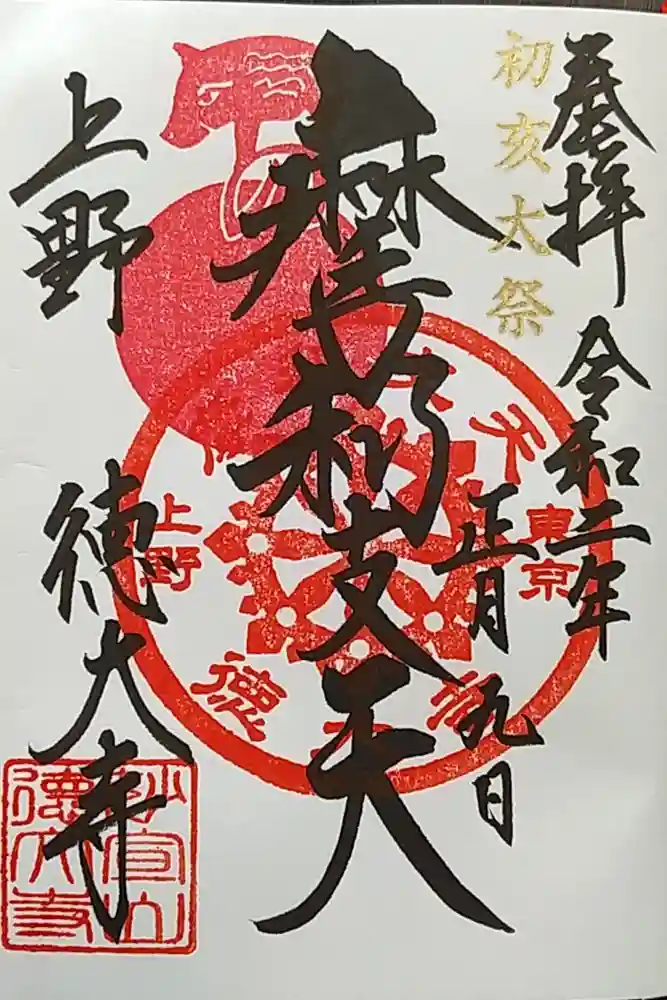 奉拝
令和二年
正月九日
初亥大祭
摩利支天
上野
徳大寺
東京
上野
天
徳
妙宣山
徳大寺